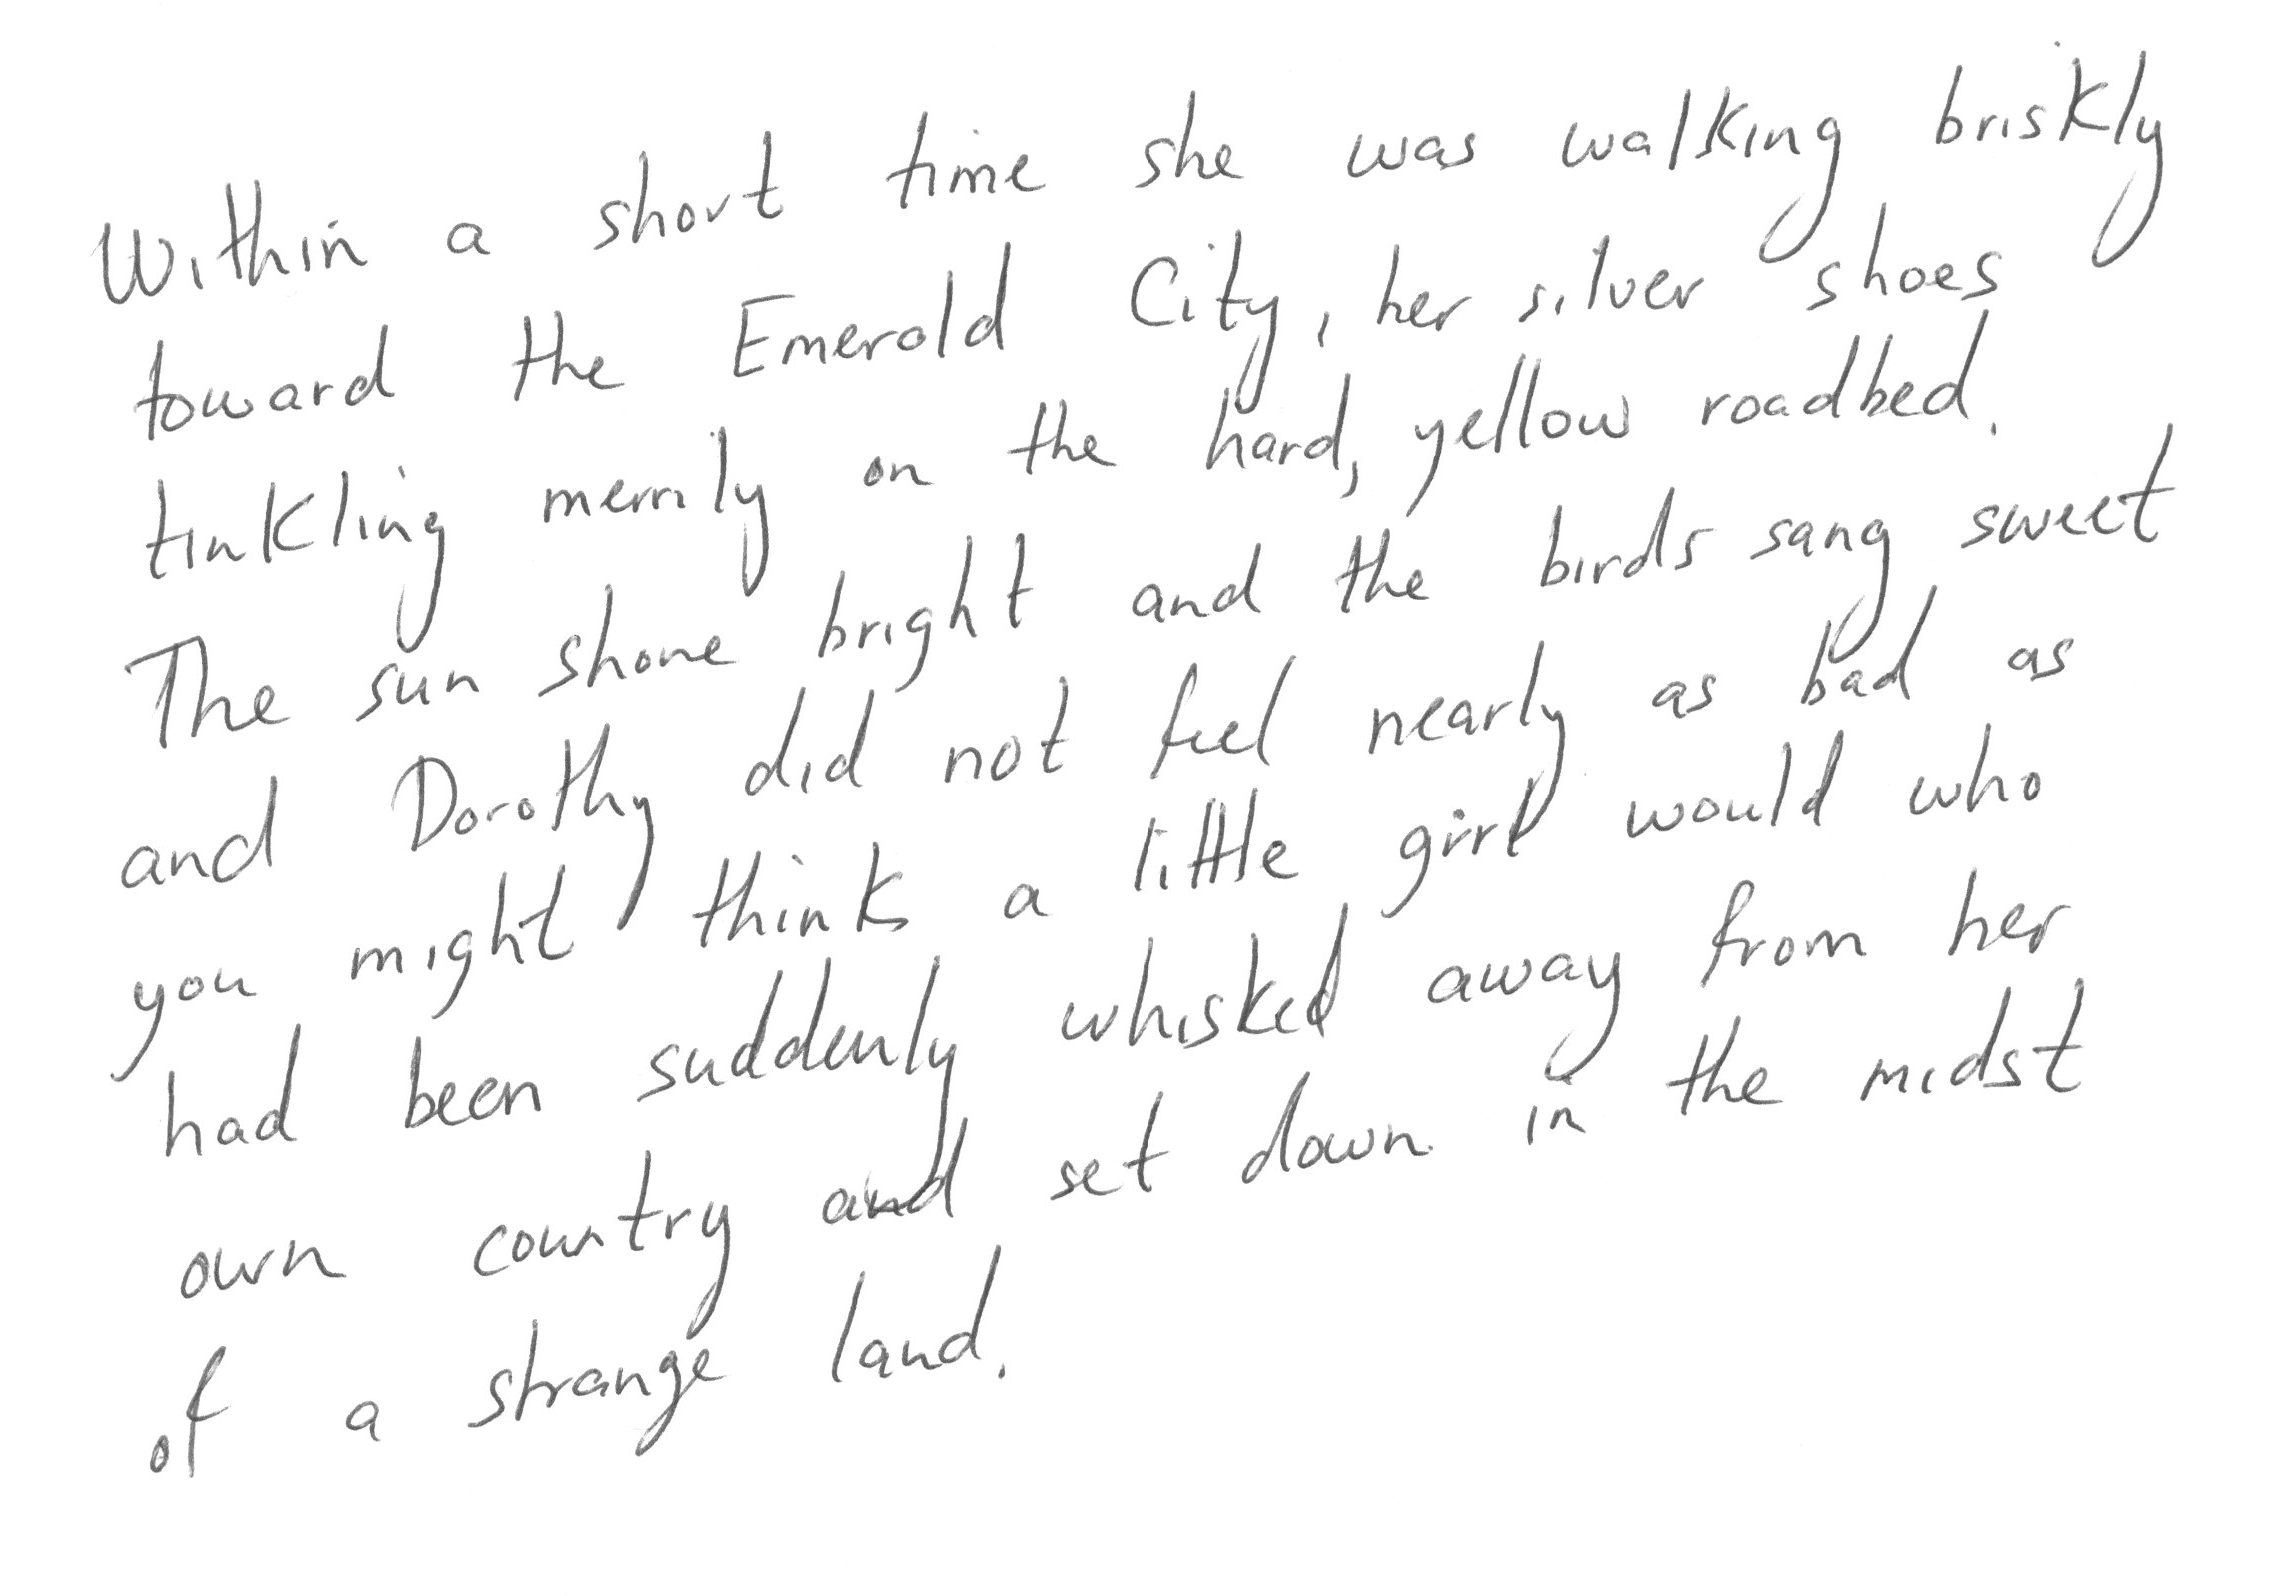 Within a short time she was walking briskly
toward the Emerald City, her silver shoes
tinkling merrily on the hard, yellow roadbed.
The sun shone bright and the birds sang sweet
and Dorothy did not feel nearly as bad as
you might think a little girl would who
had been suddenly whisked away from her
own country and set down in the midst
of a strange land.